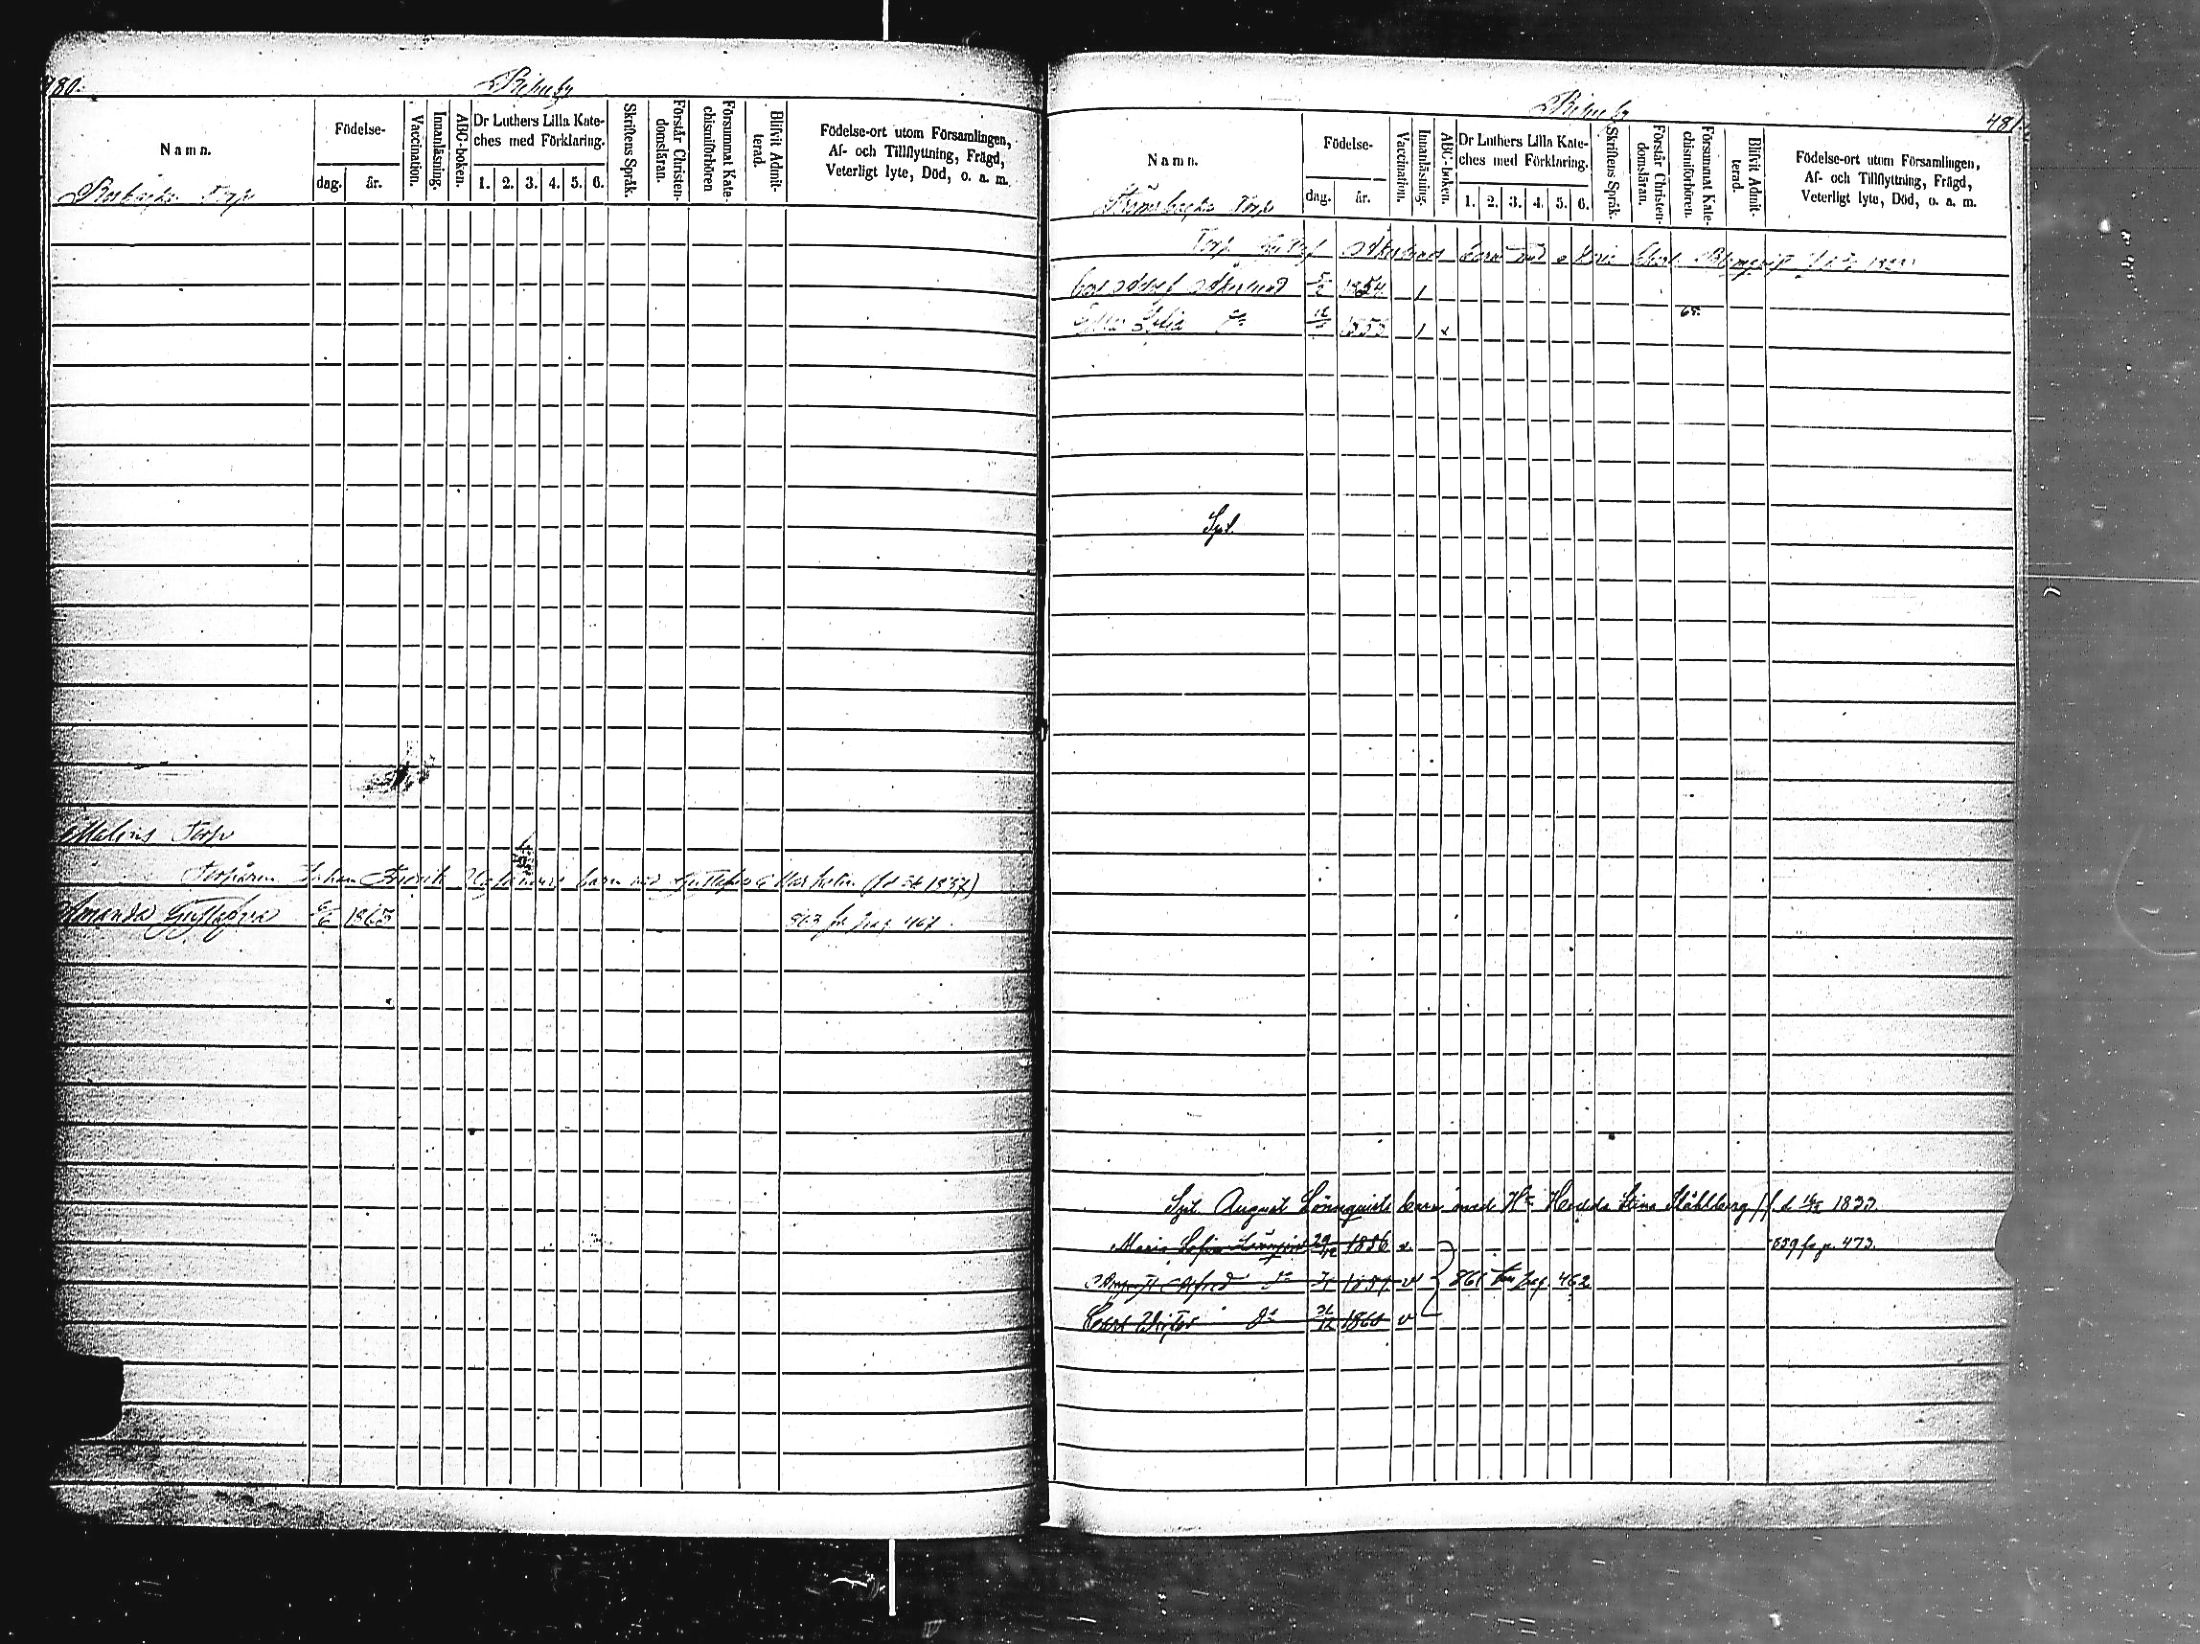 480.
Namn.
Födelse-
dag. år.
Vaccination.
Innanläsning.
ABC-boken.
Dr Luthers Lilla Kate-
ches med Förklaring.
1. 2. 3. 4. 5. 6.
Skriftens Språk.
Förstår Christen-
domsläran.
Försummat Kate-
chismiförhören
Blifvit Admit-
terad.
Födelse-ort utom Församlingen,
Af- och Tillflyttning, Frägd,
Veterligt lyte, Död, o. a. m.
Torp
Malins Torp
Torparen Johan Fredrik barn med Gustafva (f. d 1837)
Amanda Gustafva 6/6 1863 863 fr pag 467
481.
Namn.
Födelse-
dag. år.
Vaccination.
Innanläsning.
ABC-boken.
Dr Luthers Lilla Kate-
ches med Förklaring.
1. 2. 3. 4. 5. 6.
Skriftens Språk.
Förstår Christen-
domsläran.
Försummat Kate-
chismiförhören.
Blifvit Admit-
terad.
Födelse-ort utom Församlingen,
Af- och Tillflyttning, Frägd,
Veterligt lyte, Död, o. a. m.
Torp
Torp. Gustaf Åkerlunds barn med
Carl Adolf Åkerlund 1854
65.
Spt.
Spt. August Lönnquists barn med H. Hedda Stina Ståhlberg f. d. 1833.
Maria Sofia Lönnqvist 29/12 1856 v. 859 fr p. 473.
August Alfred do v 861 till pag. 462
Carl Victor do 31/12 1860 v